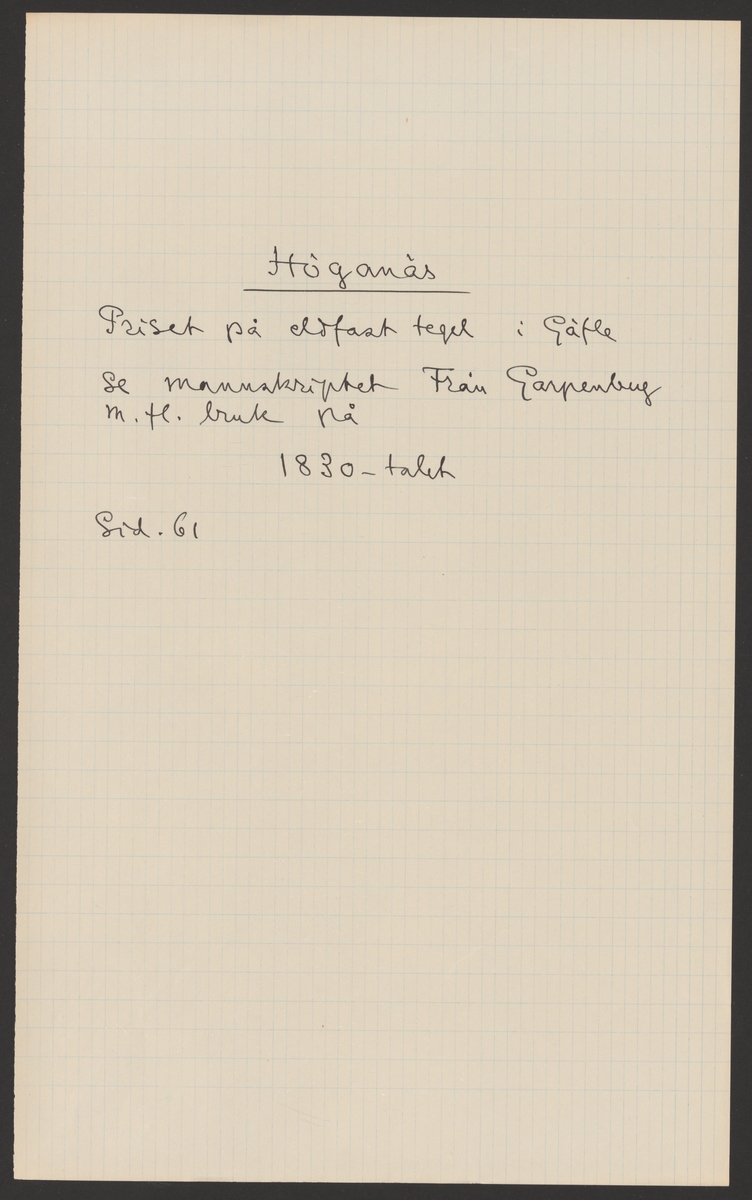 Höganäs
Priset på eldfast tegel i Gäfle
Se mannskriptet Från Garpenberg
m. fl. bruk på
1830-talet
Sid. 61